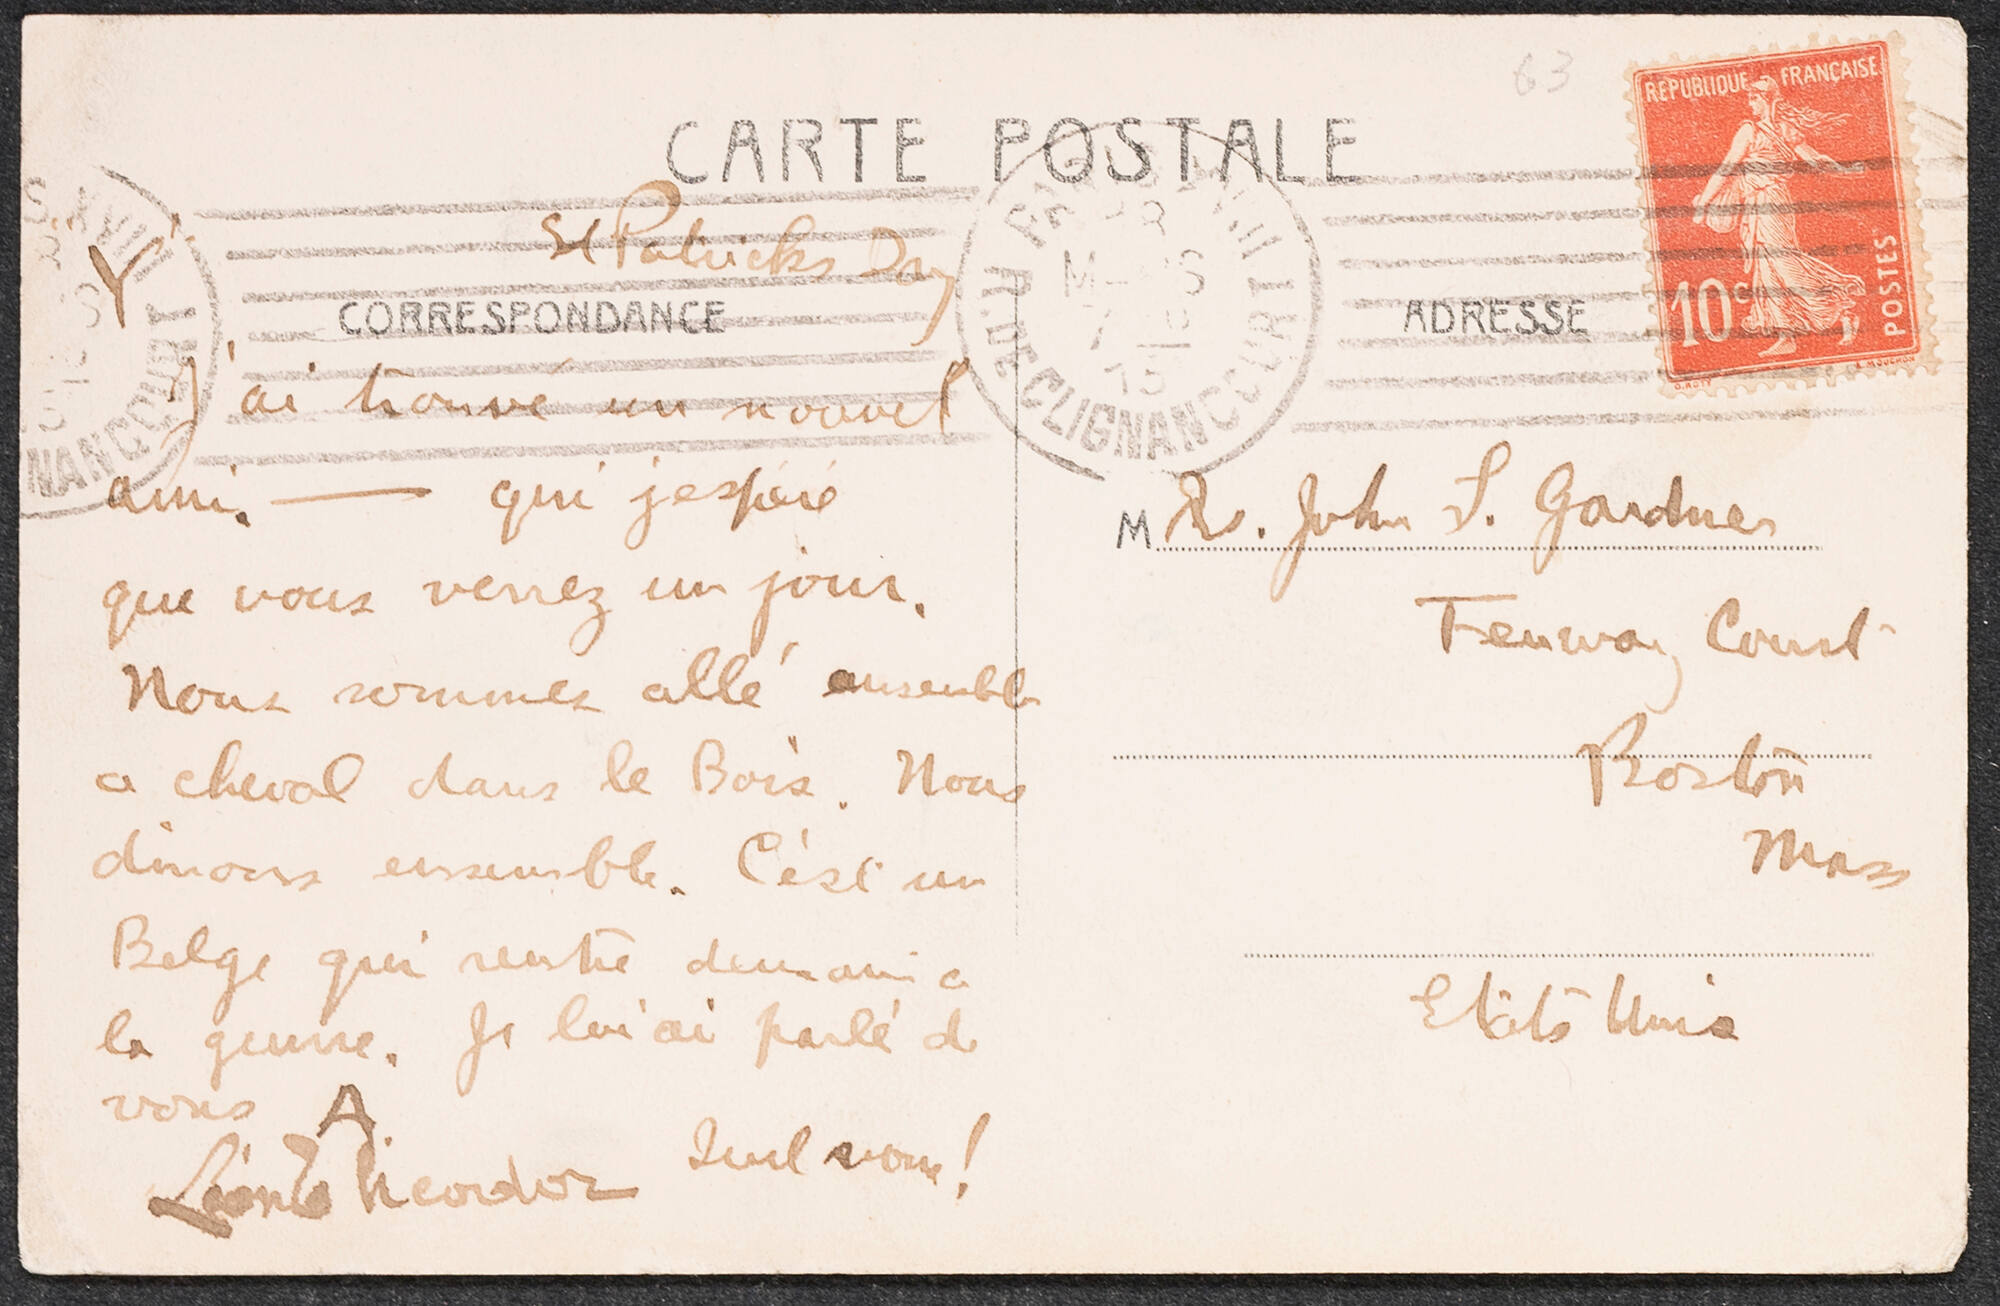 63
REPUBLIQUE FRANÇAISE
10c
POSTES
O. ROTY
E. MOUCHON
CARTE POSTALE
PARIS XVIII
AR. DE CLIGNANCOURT
St Patricks Day
CORRESPONDANCE
ADRESSE
J'ai trouvé un nouvel
ami. — qui j'espére
que vous verrez un jour.
Nous sommes allé ensemble
a cheval dans le Bois. Nous
dinons ensemble. C'est un
Belge qui rentre demain a
la guerre. Je lui ai parlé de
vous A.
Quel nom!
Mrs. John L. Gardner
Fenway Court
Boston
Mass
Etats Unis